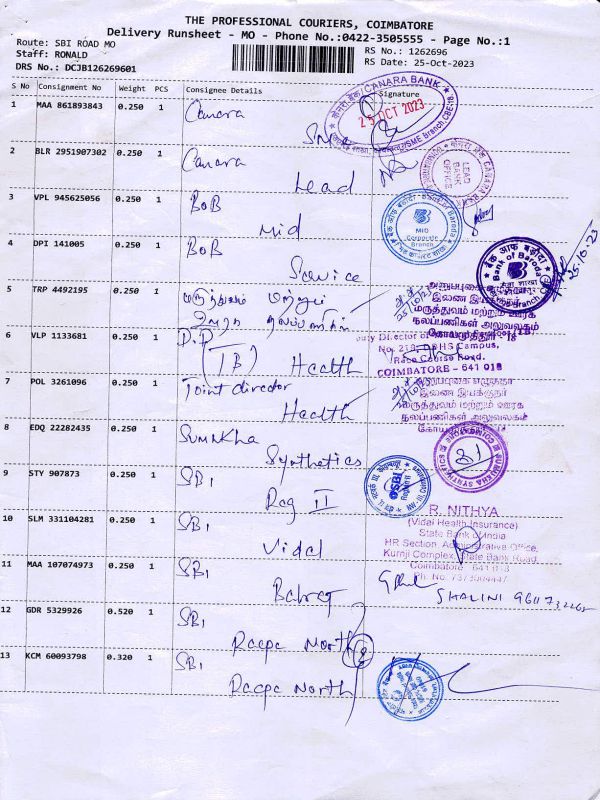 THE PROFESSIONAL COURIERS, COIMBATORE
Delivery Runsheet - MO - Phone No.:0422-3505555 - Page No.:1
Route: SBI ROAD MO
Staff: RONALD
DRS No.: DCJB126269601
RS No.: 1262696
RS Date: 25-Oct-2023
S No Consignment No Weight PCS Consignee Details Signature
1 MAA 861893843 0.250 1 Canara
CANARA BANK
25 OCT 2023
SME Branch CBE
2 BLR 2951907302 0.250 1 Canara
Lead
LEAD BANK OFFICE
CANARA BANK
3 VPL 945625056 0.250 1 BOB
Mid
MID Corporate Branch
4 DPI 141005 0.250 1 BOB
Service
बैंक ऑफ बड़ौदा
Bank of Baroda
25.10.23
5 TRP 4492195 0.250 1 மருத்துவம் மற்றும்
ஊரக நலப்பணிகள்
அலுவலகம்
6 VLP 1133681 0.250 1 D.D
(TB) Health
No. 219, DBHS Campus,
Race Course Road,
COIMBATORE - 641 018
7 POL 3261096 0.250 1 Joint director
Health
இணை இயக்குநர்
மருத்துவம் மற்றும் ஊரக
நலப்பணிகள் அலுவலகம்
8 EDQ 22282435 0.250 1 Sumukha
Synthetics
9 STY 907873 0.250 1 SBI
Reg II
SBI
10 SLM 331104281 0.250 1 SBI
Vidal
R. NITHYA
(Vidal Health Insurance)
State Bank of India
HR Section, Administrative Office,
Kurnji Complex, State Bank Road,
Coimbatore - 641 018
11 MAA 107074973 0.250 1 SBI
SHALINI
12 GDR 5329926 0.520 1 SBI
Racpc North
13 KCM 60093798 0.320 1 SBI
Racpc North